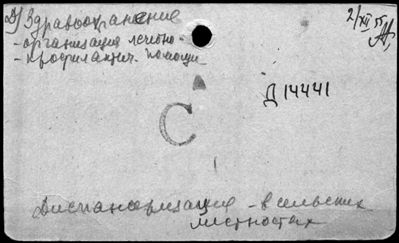 2) Здравоохранение
- организация лечебно-
- профилактич. помощи
2/XII
Д 14441
С
Диспансеризация - в сельских
местностях